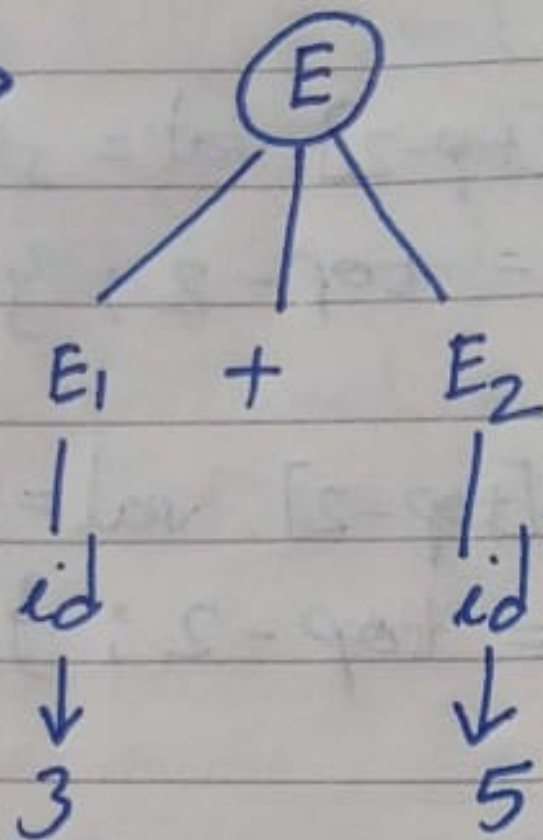 E
E₁ + E₂
id id
3 5